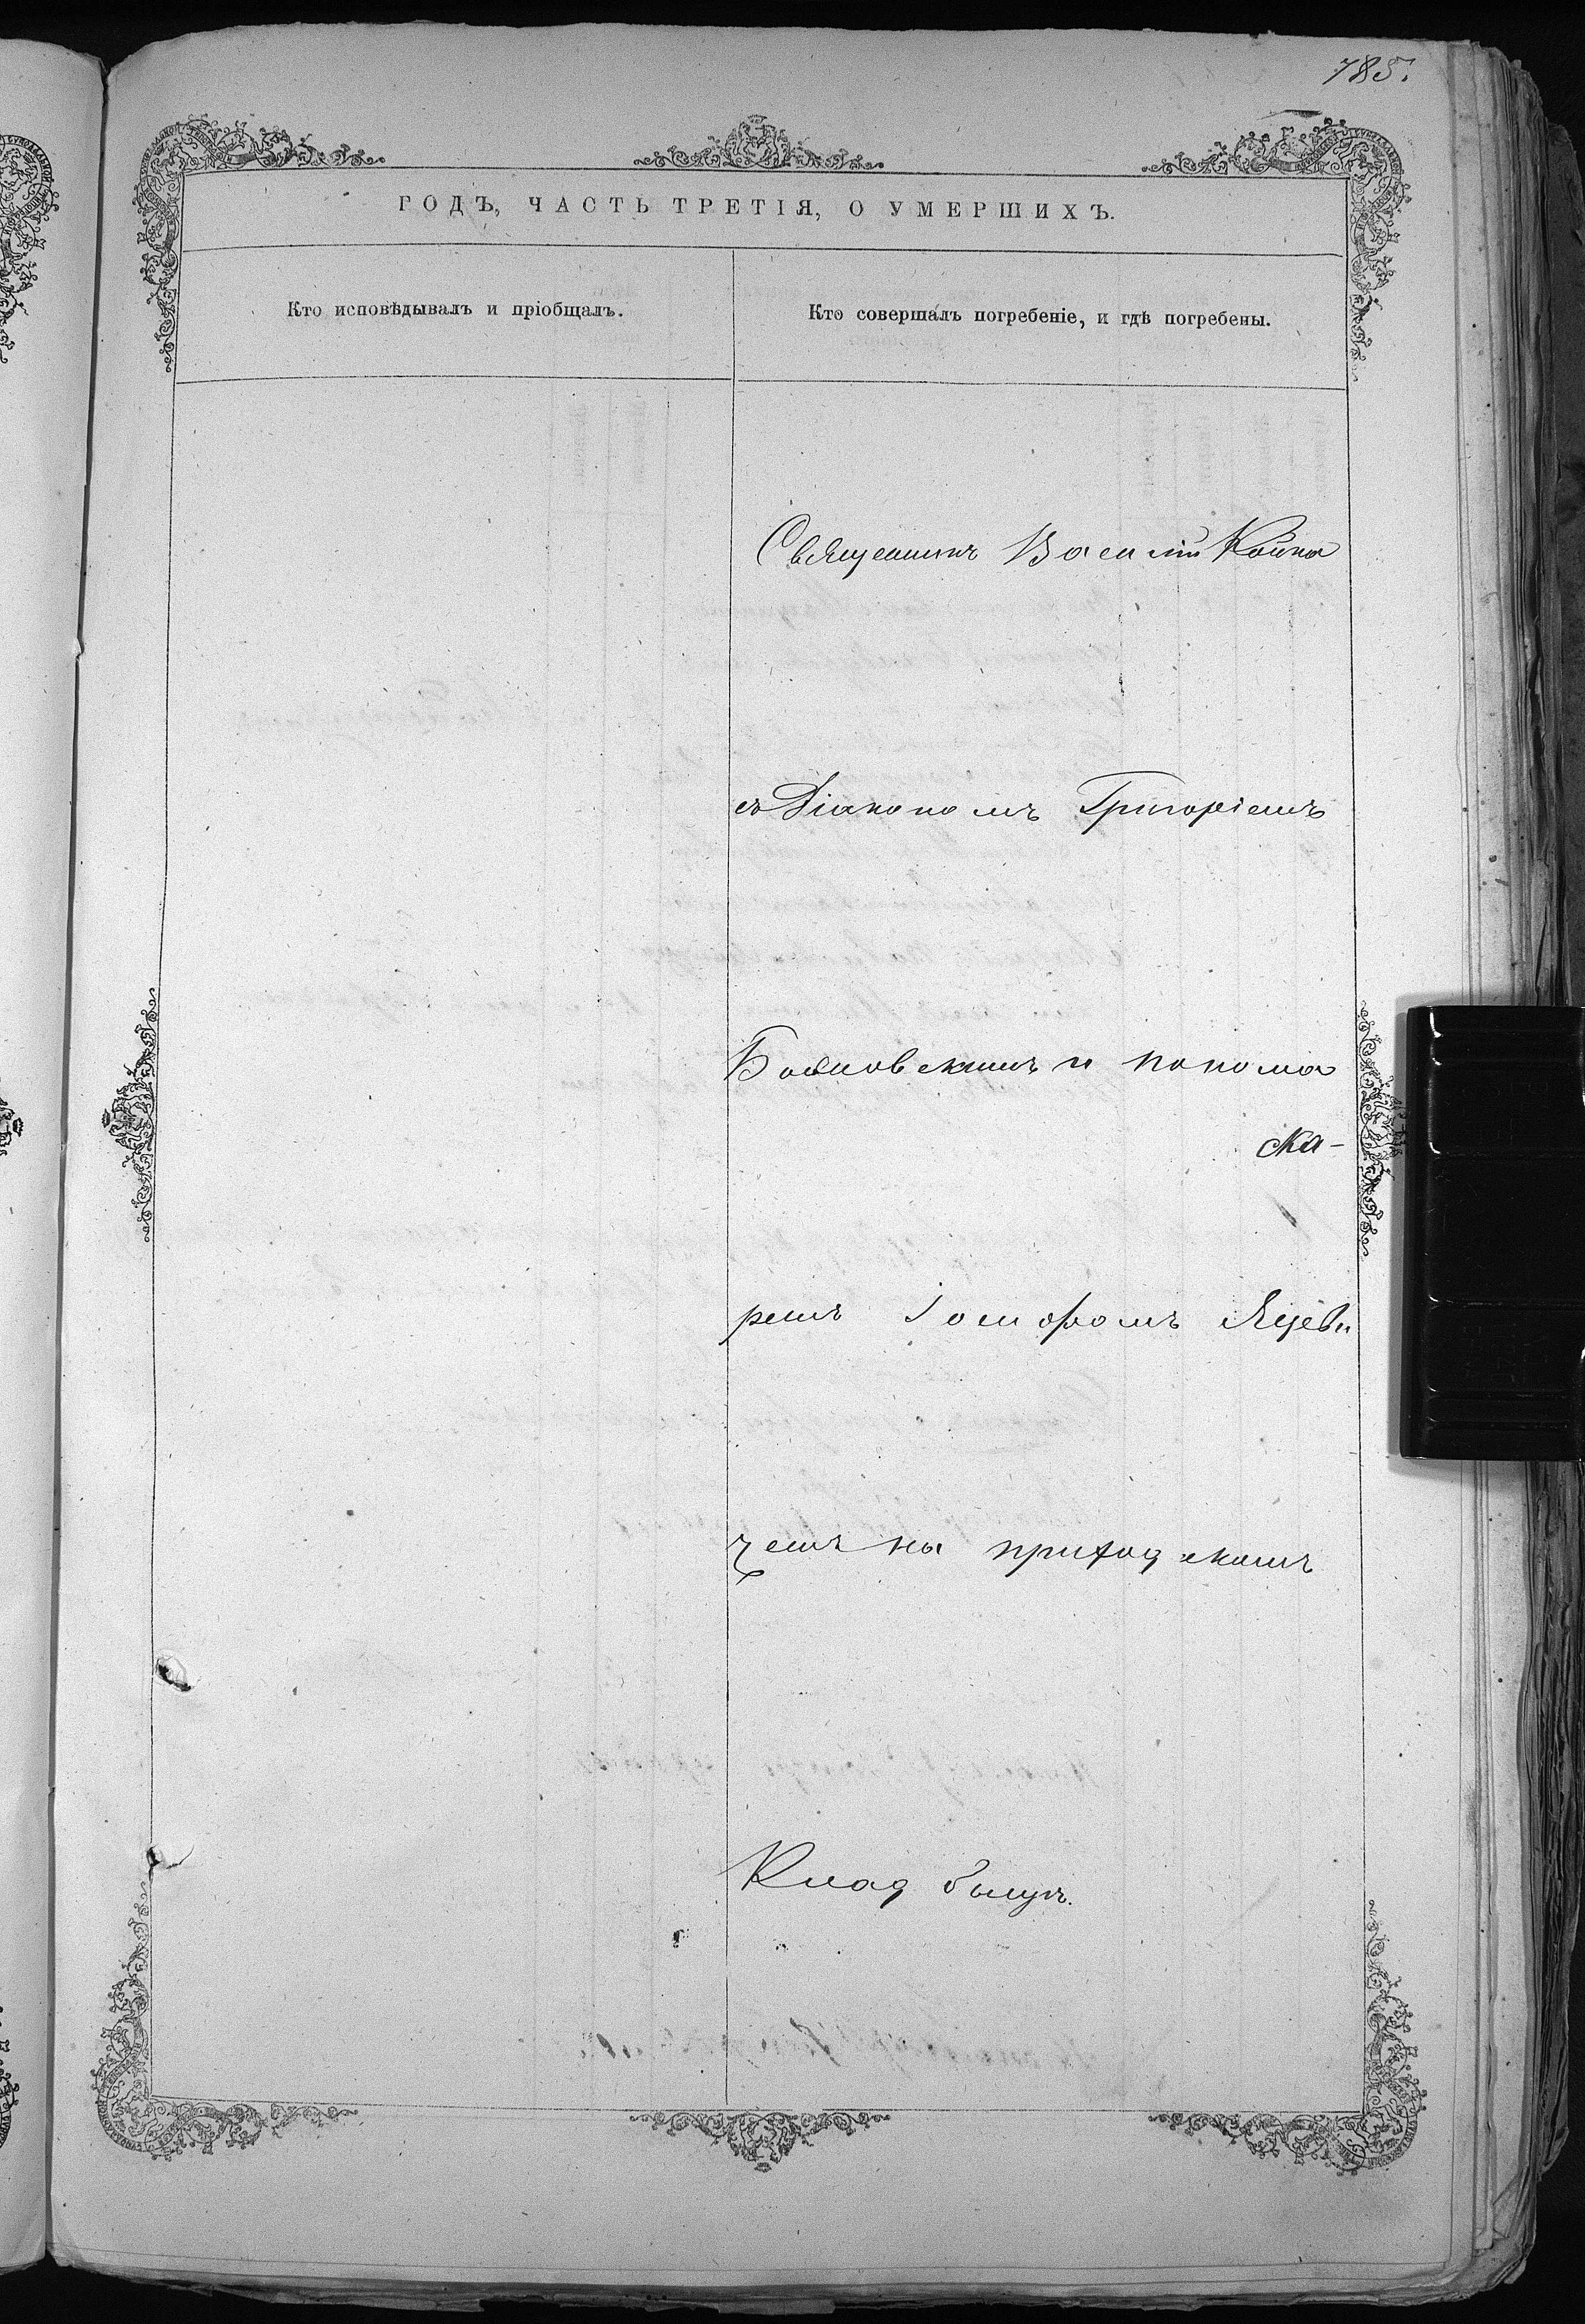 785.
ГОДЪ, ЧАСТЬ ТРЕТІЯ, О УМЕРШИХЪ.
Кто исповѣдывалъ и пріобщалъ.
Кто совершалъ погребеніе, и гдѣ погребены.
Священникъ Василій Койко
съ Діакономъ Григоріемъ
и понома
ска-
ремъ Іосифомъ Яцеви
чемъ на приходскомъ
Кладбищѣ.